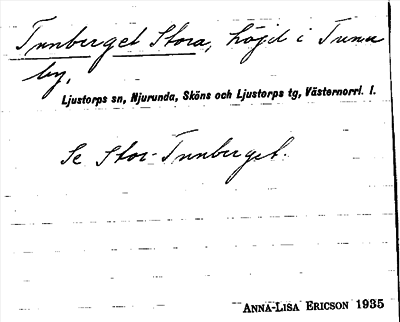 Tunberget Stora, höjd i Tuna
by.
Ljustorps sn, Njurunda, Sköns och Ljustorps tg, Västernorrl. l.
Se Stor-Tunberget.
ANNA-LISA ERICSON 1935